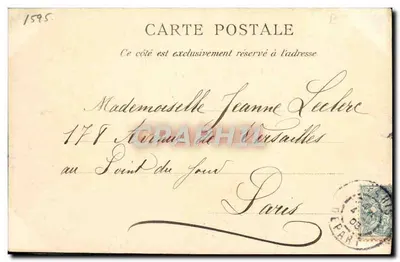 1595.
CARTE POSTALE
Ce côté est exclusivement réservé à l'adresse
Mademoiselle Jeanne Leclerc
178 Avenue de Versailles
au Point du Jour
Paris
DEPART